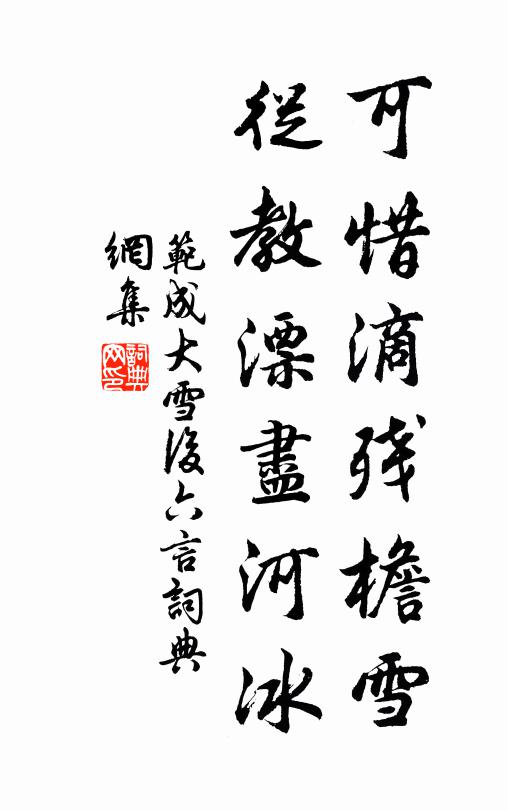 可惜滴残檐雪
從教漂盡河冰
範成大雪後六言詞典
網集
詞典
网印